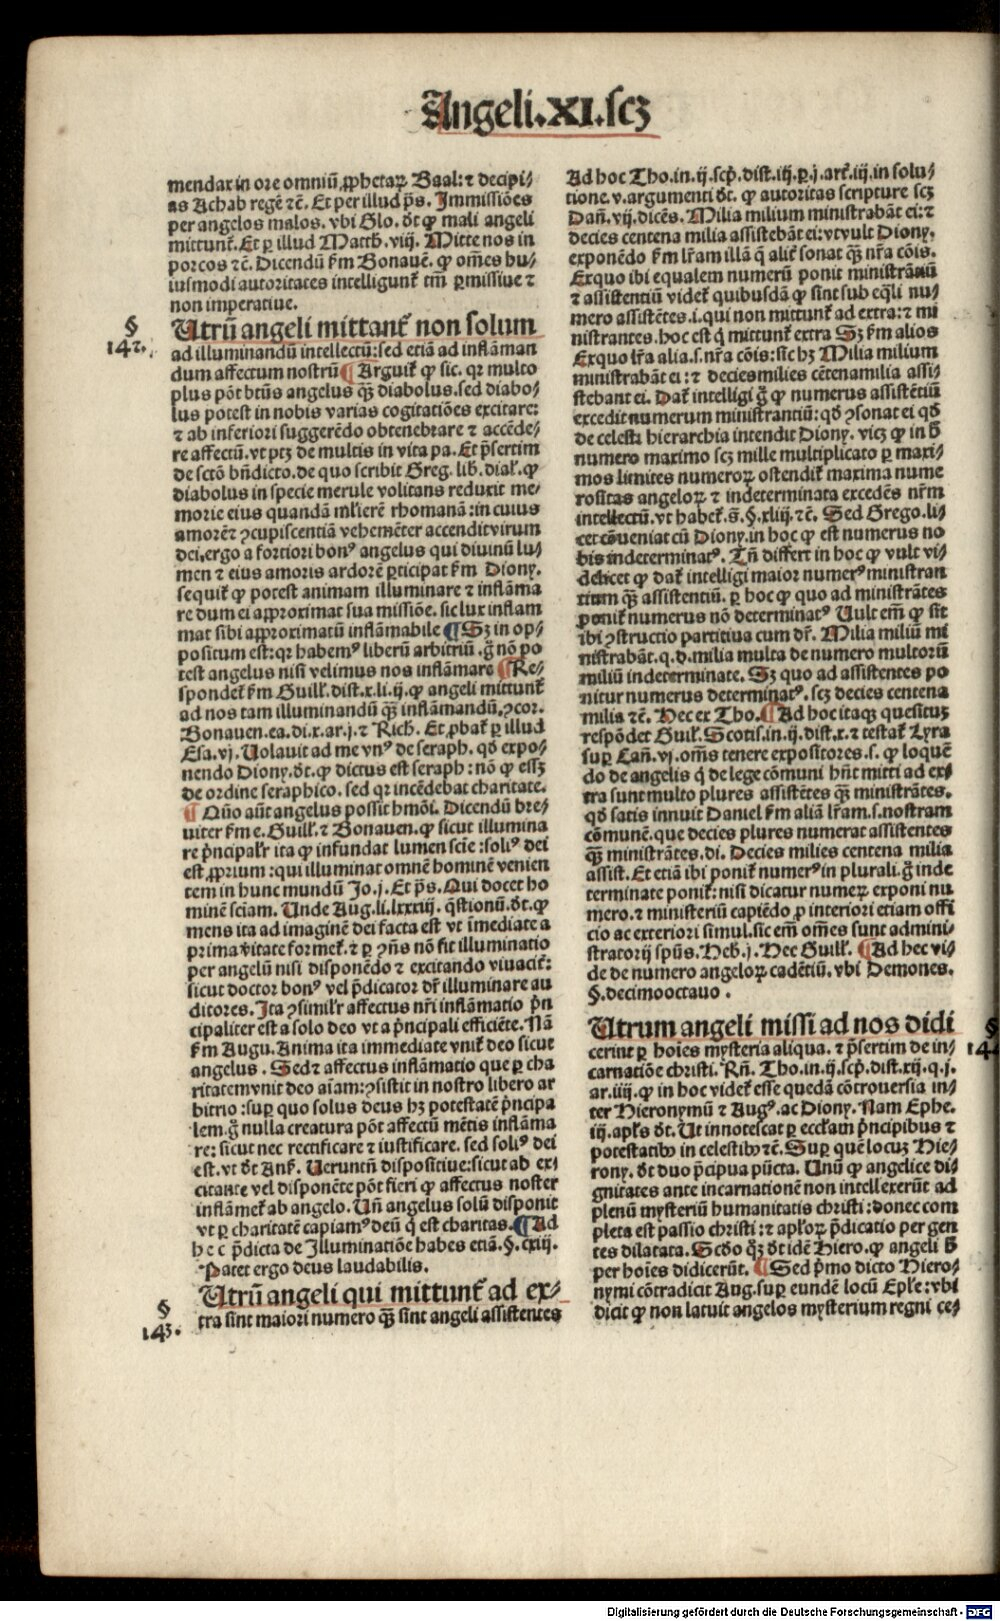 Angeli.XI.scꝫ
mendax in ore omniū ꝓphetaꝝ Baal: ⁊ decipi⸗
as Achab regē ⁊c̄. Et per illud p̄s. Immissiōes
per angelos malos. vbi Glo. dt̄ ꝙ mali angeli
mittunt̄. Et ꝑ illud Matth. viij. Mitte nos in
porcos ⁊c̄. Dicendū ẜm Bonauē. ꝙ om̄es hu⸗
iusmodi autoritates intelligunt̄ tm̄ ꝑmissiue ⁊
non imperatiue.
§
142.
Utrū angeli mittant̄ non solum
ad illuminandū intellectū: sed etiā ad inflāman
dum affectum nostrū ¶ Arguit̄ ꝙ sic. qꝛ multo
plus pōt btūs angelus qꝫ̄ diabolus. sed diabo⸗
lus potest in nobis varias cogitatiōes excitare:
⁊ ab inferiori suggerēdo obtenebrare ⁊ accēde⸗
re affectū. vt ptꝫ de multis in vita pa. Et p̄sertim
de sctō bn̄dicto. de quo scribit Greg. lib. dial̄. ꝙ
diabolus in specie merule volitans reduxit me⸗
morie eius quandā ml̄ierē rhomanā: in cuius
amorē ⁊ ꝯcupiscentiā vehemēter accendit virum
dei. ergo a fortiori bonꝰ angelus qui diuinū lu⸗
men ⁊ eius amoris ardorē ꝑticipat ẜm Diony.
sequit̄ ꝙ potest animam illuminare ⁊ inflāma
re dum ei approximat sua missiōe. sic lux inflam
mat sibi approximatū inflāmabile ¶ Sꝫ in op⸗
positum est: qꝛ habemꝰ liberū arbitriū. g̊ nō po
test angelus nisi velimus nos inflāmare ¶ Re⸗
spondet̄ ẜm Guill̄. dist. x. li. ij. ꝙ angeli mittunt̄
ad nos tam illuminandū qꝫ̄ inflāmandū. ꝯcor.
Bonauen. ea. di. x. ar. j. ⁊ Rich. Et ꝓbat̄ ꝑ illud
Esa. vj. Uolauit ad me vnꝰ de seraph. qd̄ expo⸗
nendo Diony. dt̄. ꝙ dictus est seraph: nō ꝙ essꝫ
de ordine seraphico. sed qꝛ incēdebat charitate.
¶ Qn̄o aūt angelus possit hmōi. Dicendū bre⸗
uiter ẜm e. Guill̄. ⁊ Bonauen. ꝙ sicut illumina
re p̄ncipal̄r ita ꝙ infundat lumen scīe: soliꝰ dei
est ꝓprium: qui illuminat omnē hominē venien
tem in hunc mundū Jo. j. Et p̄s. Qui docet ho
minē sciam. Unde Aug. li. lxxxiij. q̄stionū. dt̄. ꝙ
mens ita ad imaginē dei facta est vt īmediate a
prima v̄itate formet̄. ⁊ ꝑ ꝯn̄s nō fit illuminatio
per angelū nisi disponēdo ⁊ excitando viuacit̄:
sicut doctor bonꝰ vel p̄dicator dr̄ illuminare au
ditores. Ita ꝯsimil̄r affectus nr̄i inflāmatio p̄n
cipaliter est a solo deo vt a p̄ncipali efficiēte. Nā
ẜm Augu. Anima ita immediate vnit̄ deo sicut
angelus. Sed ⁊ affectus inflāmatio que ꝑ cha
ritatem vnit deo aīam: ꝯsistit in nostro libero ar
bitrio: suꝑ quo solus deus hꝫ potestatē p̄ncipa
lem. g̊ nulla creatura pōt affectū mētis inflāma
re: sicut nec rectificare ⁊ iustificare. sed soliꝰ dei
est. vt dt̄ Ans̄. Ueruntn̄ dispositiue: sicut ab exi
citante vel disponēte pōt fieri ꝙ affectus noster
inflāmet̄ ab angelo. Un̄ angelus solū disponit
vt ꝑ charitatē capiamꝰ deū q̇ est charitas. ¶ Ad
hec p̄dicta de Illuminatiōe habes etiā. §. cxiij.
Patet ergo deus laudabilis.
§
143.
Utrū angeli qui mittunt̄ ad ex⸗
tra sint maiori numero qꝫ̄ sint angeli assistentes
Ad hoc Tho. in. ij. scp̄. dist. iij. ꝑ. j. art̄. iij. in solu⸗
tione. v. argumenti dt̄. ꝙ autoritas scripture scꝫ
Dan̄. vij. dicēs. Milia milium ministrabāt ei: ⁊
decies centena milia assistebāt ei: vt vult Diony.
exponēdo ẜm lr̄am illā q̄ alit̄ sonat qꝫ̄ nr̄a cōis.
Exquo ibi equalem numerū ponit ministrātiū
⁊ assistentiū videt̄ quibusdā ꝙ sint sub eq̄li nu⸗
mero assistētes. i. qui non mittunt̄ ad extra: ⁊ mi
nistrantes. hoc est q̇ mittunt̄ extra Sꝫ ẜm alios
Exquo lr̄a alia. s. nr̄a cōis: sic hꝫ Milia milium
ministrabāt ei: ⁊ decies milies cētena milia assi⸗
stebant ei. Dat̄ intelligi g̊ ꝙ numerus assistētiū
excedit numerum ministrantiū: qd̄ ꝯsonat ei qd̄
de celesti hierarchia intendit Diony. vicꝫ ꝙ in h̄
numero maximo scꝫ mille multiplicato ꝑ maxi⸗
mos limites numeroꝝ ostendit̄ maxima nume
rositas angeloꝝ ⁊ indeterminata excedēs nr̄m
intellectū. vt habet̄. s̄. §. xliij. ⁊c̄. Sed Grego. li⸗
cet cōueniat cū Diony. in hoc ꝙ est numerus no
bis indeterminatꝰ. Tn̄ differt in hoc ꝙ vult vi⸗
delicet ꝙ dat̄ intelligi maior numerꝰ ministran
tium qꝫ̄ assistentiū. ꝑ hoc ꝙ quo ad ministrātes
ponit̄ numerus nō determinatꝰ Uult em̄ ꝙ sit
ibi ꝯstructio partitiua cum dr̄. Milia miliū mi
nistrabāt. q. d. milia multa de numero multorū
miliū indeterminate. Sꝫ quo ad assistentes po
nitur numerus determinatꝰ. scꝫ decies centena
milia ⁊c̄. Hec ex Tho. ¶ Ad hoc itaqꝫ quesituꝫ
respōdet Guil̄. Scotis. in. ij. dist. x. ⁊ testat̄ Lyra
suꝑ Can̄. vj. om̄s tenere expositores. s. ꝙ loquē
do de angelis q̇ de lege cōmuni hn̄t mitti ad ex⸗
tra sunt multo plures assistētes qꝫ̄ ministrātes.
qd̄ satis innuit Daniel ẜm aliā lr̄am. s. nostram
cōmunē. que decies plures numerat assistentes
qꝫ̄ ministrātes. di. Decies milies centena milia
assist. Et etiā ibi ponit̄ numerꝰ in plurali. g̊ inde
terminate ponit̄: nisi dicatur numeꝝ exponi nu
mero. ⁊ ministeriū capiēdo ꝓ interiori etiam offi
cio ac exteriori simul. sic em̄ om̄es sunt admini⸗
stratorij sp̄us. Heb. j. Hec Guill̄. ¶ Ad hec vi⸗
de de numero angeloꝝ cadētiū. vbi Demones.
§. decimooctauo.
§
144
Utrum angeli missi ad nos didi
cerint ꝑ hoīes mysteria aliqua. ⁊ p̄sertim de in⸗
carnatiōe christi. Rn̄. Tho. in. ij. scp̄. dist. xij. q. j.
ar. iiij. ꝙ in hoc videt̄ esse quedā cōtrouersia in⸗
ter Hieronymū ⁊ Augꝰ. ac Diony. Nam Ephe.
iij. apl̄s dt̄. Ut innotescat ꝑ eccl̄iam p̄ncipibus ⁊
potestatibꝰ in celestibꝰ ⁊c̄. Suꝑ quē locuꝫ Hie⸗
rony. dt̄ duo p̄cipua pūcta. Unū ꝙ angelice di⸗
gnitates ante incarnationē non intellexerūt ad
plenū mysteriū humanitatis christi: donec com
pleta est passio christi: ⁊ apl̄oꝝ p̄dicatio per gen
tes dilatata. Scd̄o qꝫ̄ dt̄ idē Hiero. ꝙ angeli h̄
per hoīes didicerūt. ¶ Sed p̄mo dicto Hiero⸗
nymi cōtradicit Aug. suꝑ eundē locū Ephe: vbi
dicit ꝙ non latuit angelos mysterium regni ce⸗
Digitalisierung gefördert durch die Deutsche Forschungsgemeinschaft - DFG